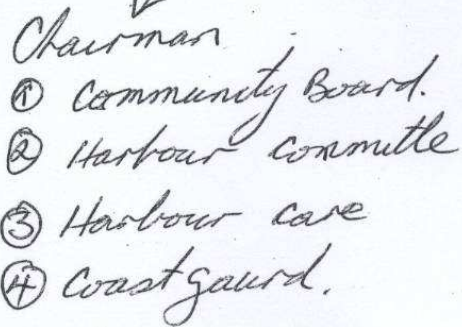 Chairman
① Community Board.
② Harbour committe
③ Harbour care
④ Coast gaurd.